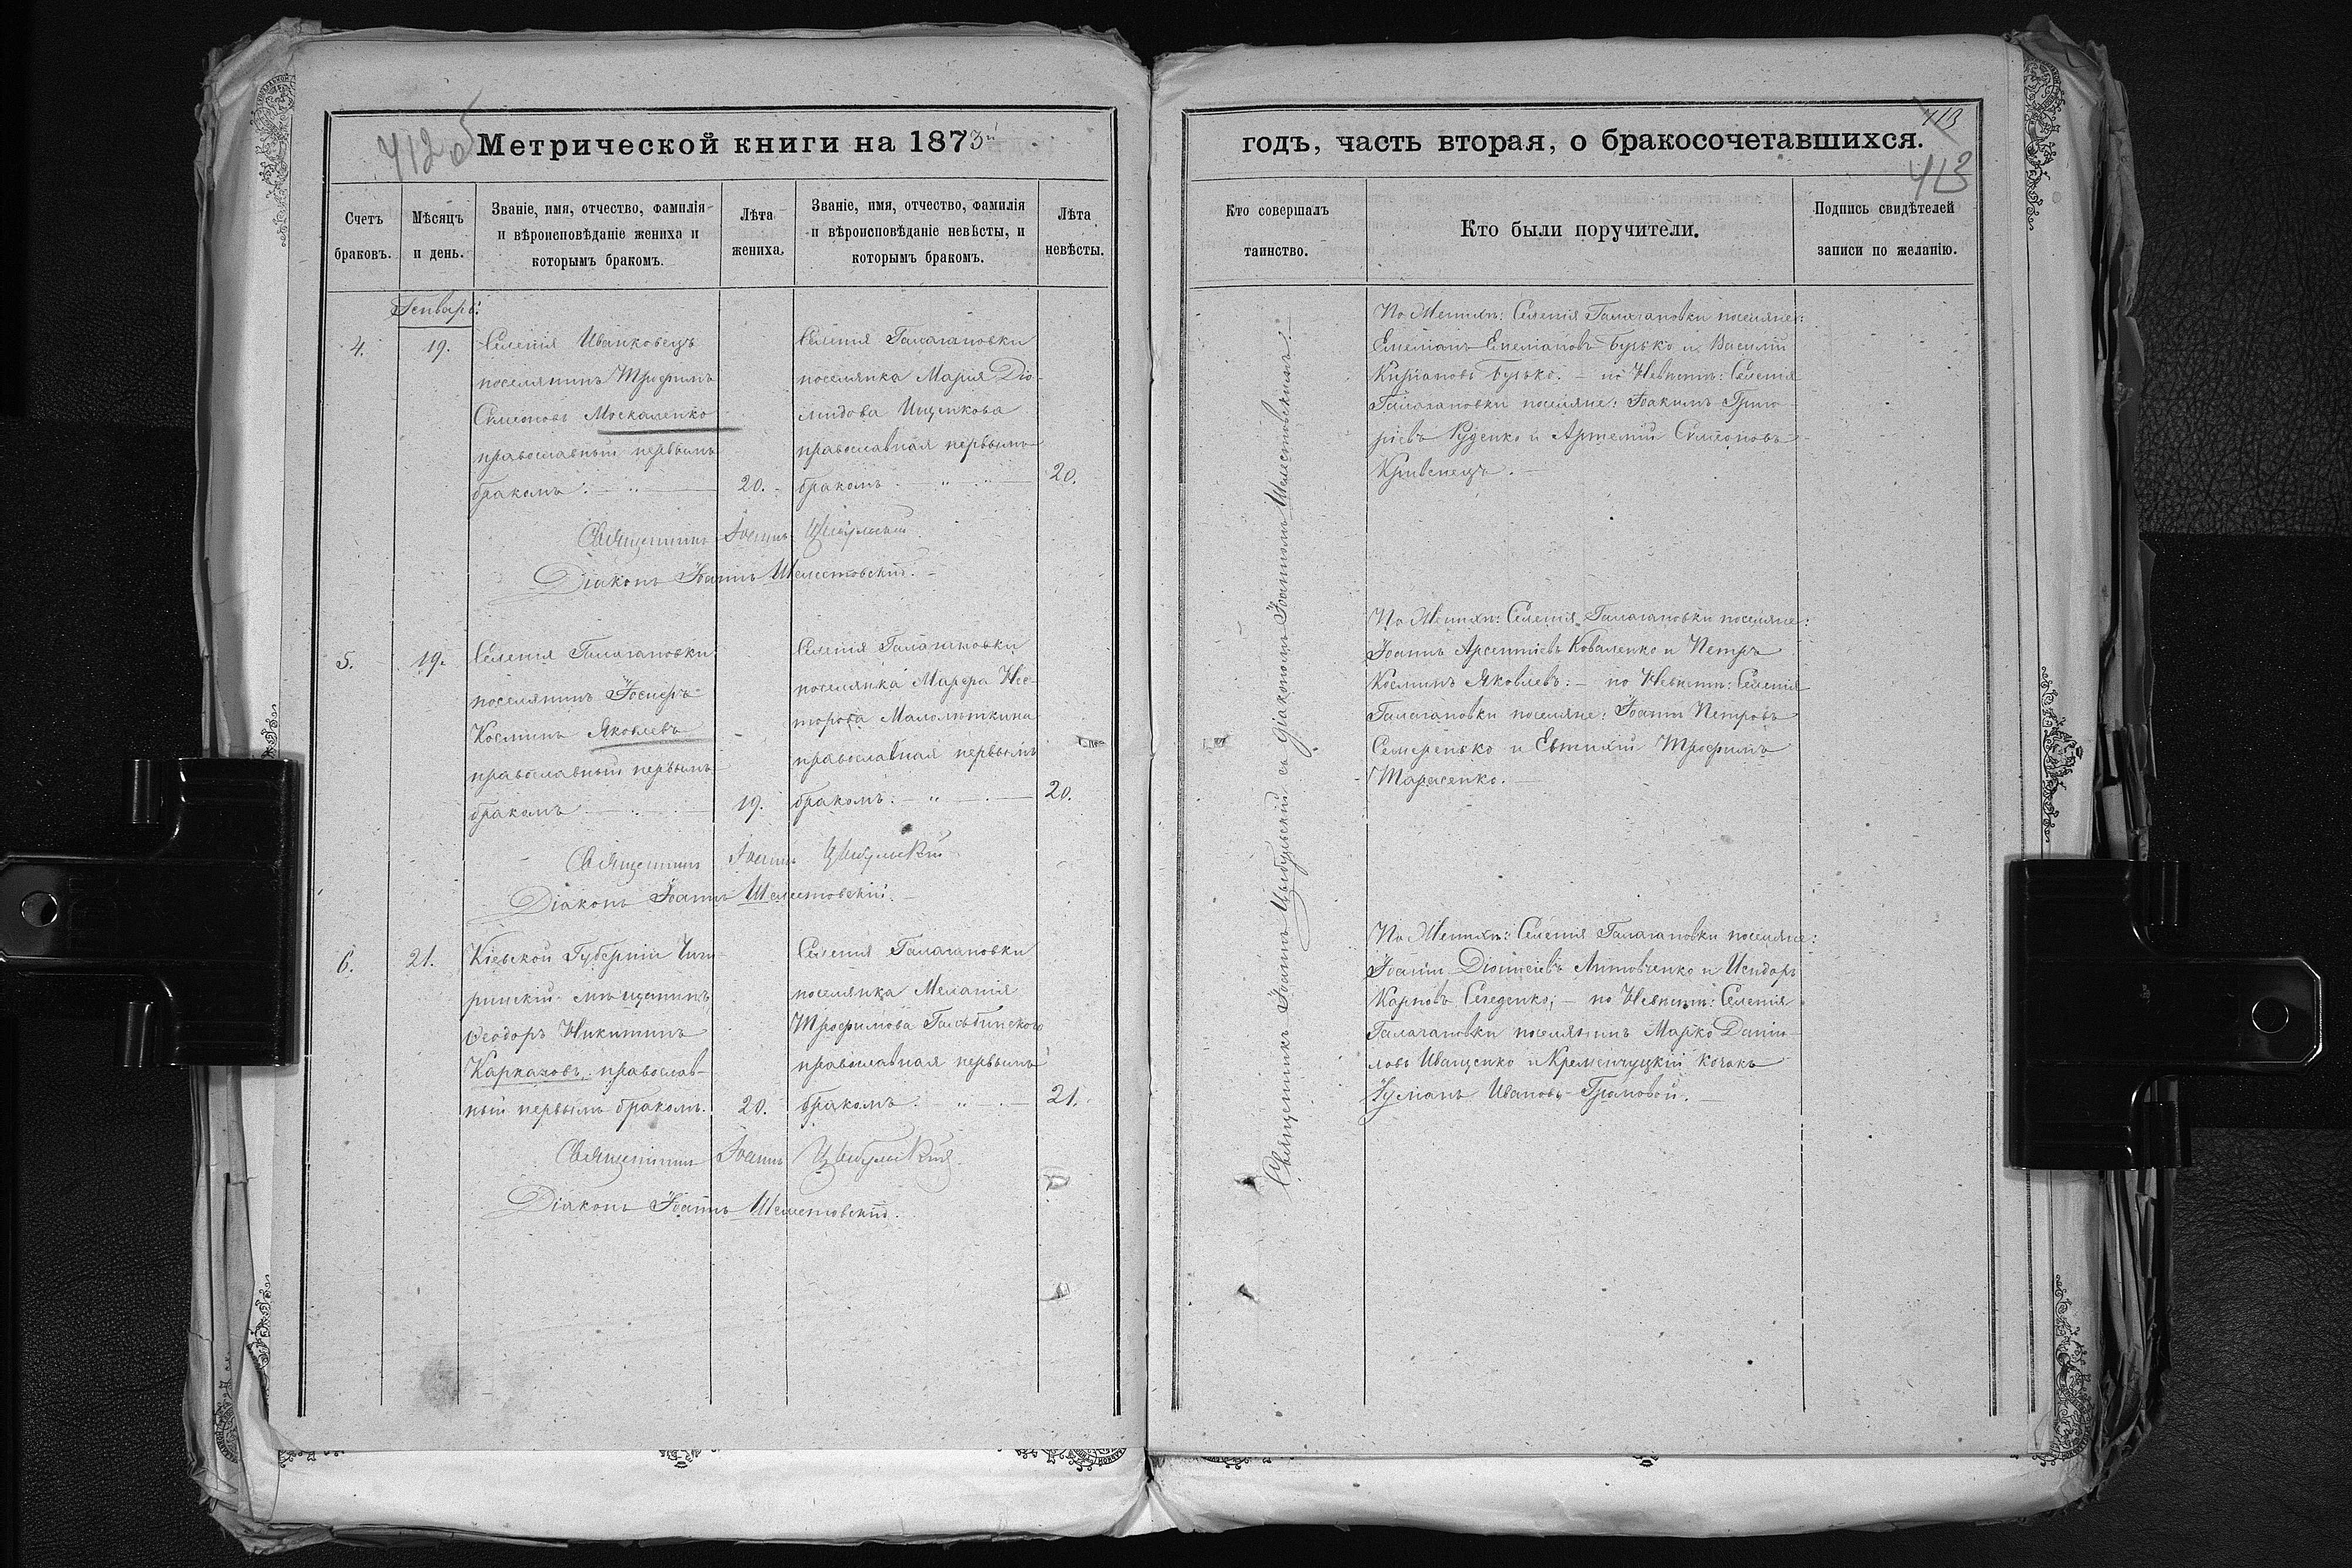 412 об
Метрической книги на 1873й
Счетъ браковъ.
Мѣсяцъ и день.
Званіе, имя, отчество, фамилія и вѣроисповѣданіе жениха и которымъ бракомъ.
Лѣта жениха.
Званіе, имя, отчество, фамилія и вѣроисповѣданіе невѣсты, и которымъ бракомъ.
Лѣта невѣсты.
Генварь:
4.
19.
Селенія Иванковецъ
поселянинъ Трофимъ
Симеоновъ Москаленко
православный первымъ
бракомъ.
20.
Селенія Галагановки
поселянка Марія Діо-
мидова Ищенкова
православная первымъ
бракомъ
20.
Священникъ Іоаннъ Цыбульскій
Діаконъ Іоаннъ Шелестовскій.
5.
19.
Селенія Галагановки
поселянинъ Іосифъ
Косминъ Яковлевъ
православный первымъ
бракомъ
19.
Селенія Галагановки
поселянка Марфа Нес-
торова Малолѣткина
православная первымъ
бракомъ.
20.
Священникъ Іоаннъ Цыбульскій
Діаконъ Іоаннъ Шелестовскій.
6.
21.
Кіевской Губерніи Чиги-
ринскій мѣщанинъ
Ѳеодоръ Никитинъ
Карказовъ православ-
ный первымъ бракомъ.
20.
Селенія Галагановки
поселянка Меланія
Трофимова
православная первымъ
бракомъ.
21.
Священникъ Іоаннъ Цыбульскій
Діаконъ Іоаннъ Шелестовскій.
годъ, часть вторая, о бракосочетавшихся.
113
413
Кто совершалъ таинство.
Кто были поручители.
Подпись свидѣтелей записи по желанію.
Священникъ Іоаннъ Цыбульскій съ діакономъ Іоанномъ Шелестовскимъ.
По Женихѣ: Селенія Галагановки поселяне:
Емеліанъ Емеліановъ Бузько и Василій
Киріановъ Бузько. — по Невѣстѣ: Селенія
Галагановки поселяне: Іоакимъ Григо-
ріевъ Руденко и Артемій Симеоновъ
Кривенецъ.
По Женихѣ: Селенія Галагановки поселяне:
Іоаннъ Арсентіевъ Коваленко и Петръ
Косминъ Яковлевъ: — по Невѣстѣ: Селенія
Галагановки поселяне: Іоаннъ Петровъ
Семеренько и Евтихій Трофимъ
Тарасенко.
По Женихѣ: Селенія Галагановки поселяне:
Іоаннъ Діонисіевъ Литовченко и Исидоръ
Карповъ Середенко; — по Невѣстѣ: Селенія
Галагановки поселянинъ Марко Дани-
ловъ Иващенко и Кременчуцкій козакъ
Іуліанъ Ивановъ Громовой.